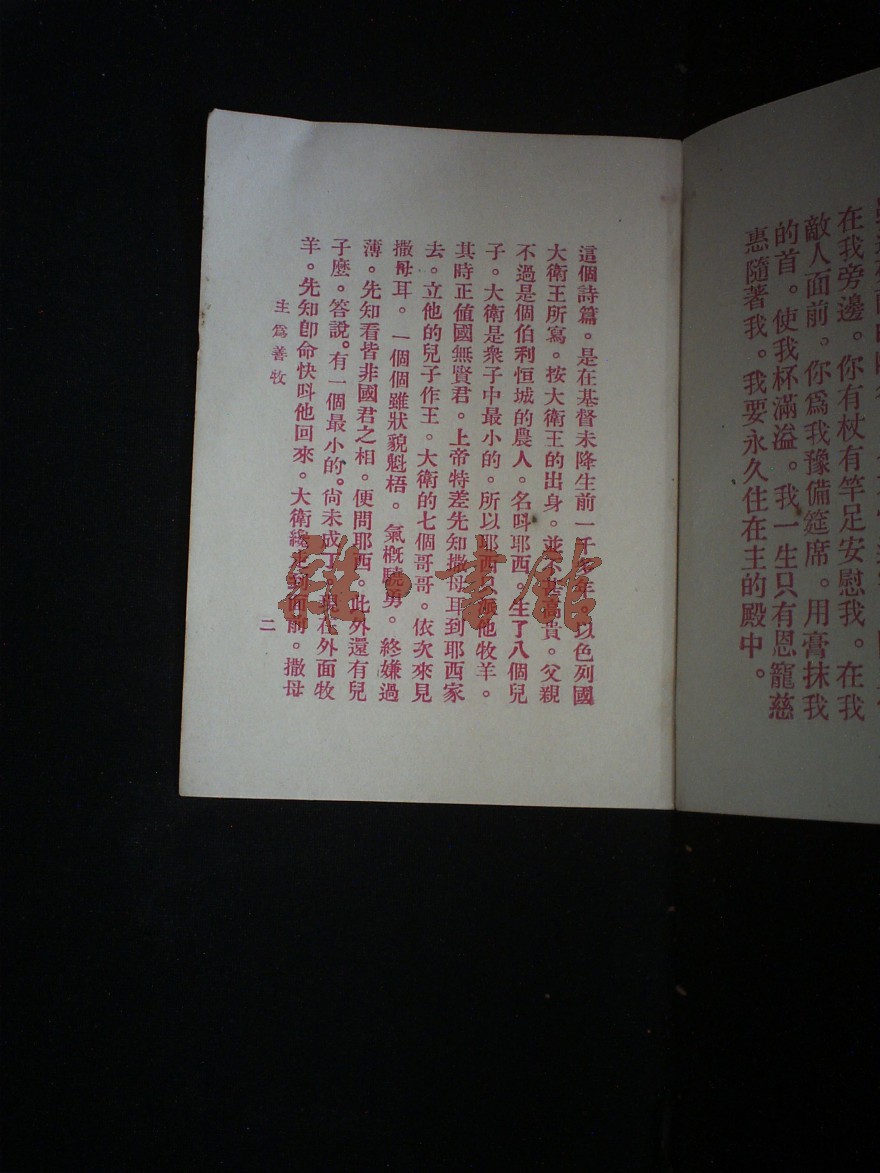 在我旁邊。你有杖有竿足安慰我。在我
敵人面前。你爲我豫備筵席。用膏抹我
的首。使我杯滿溢。我一生只有恩寵慈
惠隨著我。我要永久住在主的殿中。
這個詩篇。是在基督未降生前一千多年。以色列國
大衛王所寫。按大衛王的出身。並不甚高貴。父親
不過是個伯利恒城的農人。名呌耶西。生了八個兒
子。大衛是衆子中最小的。所以耶西 他牧羊。
其時正値國無賢君。上帝特差先知撒母耳到耶西家
去。立他的兒子作王。大衛的七個哥哥。依次來見
撒母耳。一個個雖狀貌魁梧。氣概驍勇。終嫌過
薄。先知看皆非國君之相。便問耶西。此外還有兒
子麽。答說。有一個最小的。尙未成丁。現在外面牧
羊。先知卽命快呌他回來。大衛纔走到面前。撒母
主爲善牧
二